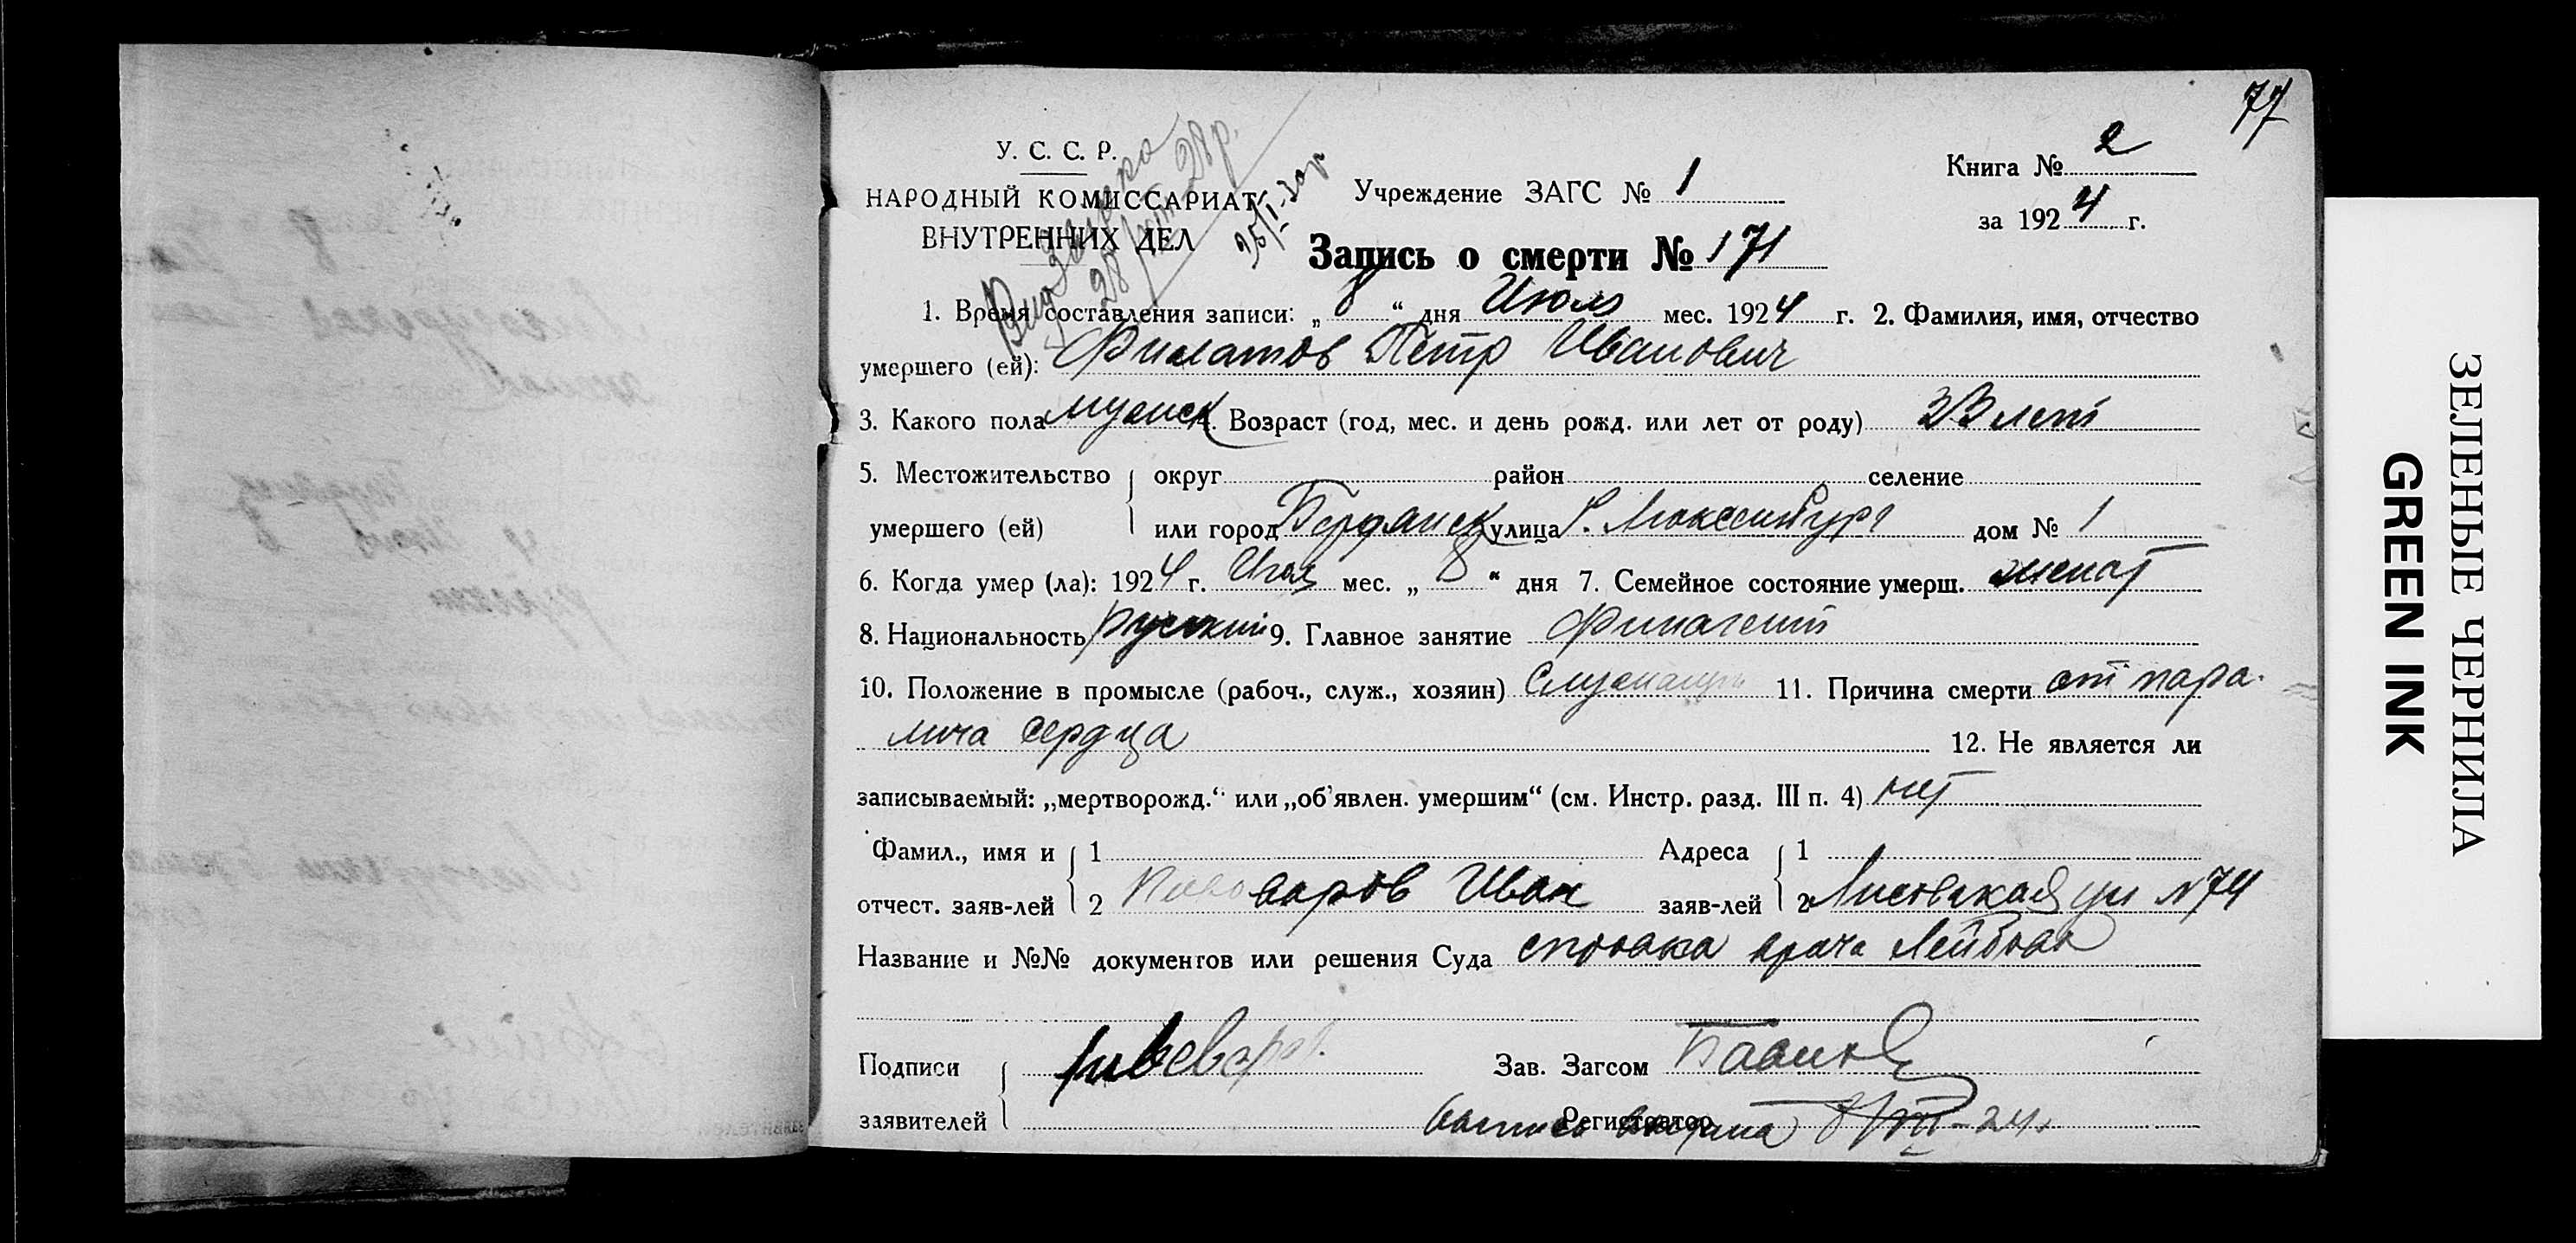 77
У. С. С. Р.
НАРОДНЫЙ КОМИССАРИАТ
ВНУТРЕННИХ ДЕЛ
28р.
Учреждение ЗАГС № 1
Книга № 2
за 1924 г.
Запись о смерти № 171
1. Время составления записи: „ 8 “ дня Июля мес. 1924 г. 2. Фамилия, имя, отчество
умершего (ей): Филатов Петр Иванович
3. Какого пола мужск 4. Возраст (год, мес. и день рожд. или лет от роду) 33 лет
5. Местожительство округ район селение
умершего (ей) или город Бердянск улица Р. Люксембург дом № 1
6. Когда умер (ла): 1924 г. Июля мес. „ 8 “ дня 7. Семейное состояние умерш. женат
8. Национальность русский 9. Главное занятие
10. Положение в промысле (рабоч., служ., хозяин) Служащий 11. Причина смерти от пара-
лича сердца 12. Не является ли
записываемый: „мертворожд.“ или „об’явлен. умершим“ (см. Инстр. разд. III п. 4) нет
Фамил., имя и 1 Адреса 1
отчест. заяв-лей 2 Пивоваров Иван заяв-лей 2 ул N 74
Название и №№ документов или решения Суда справка врача
Подписи Зав. Загсом
заявителей Регистратор 8/VII-24г.
ЗЕЛЕНЫЕ ЧЕРНИЛА
GREEN INK